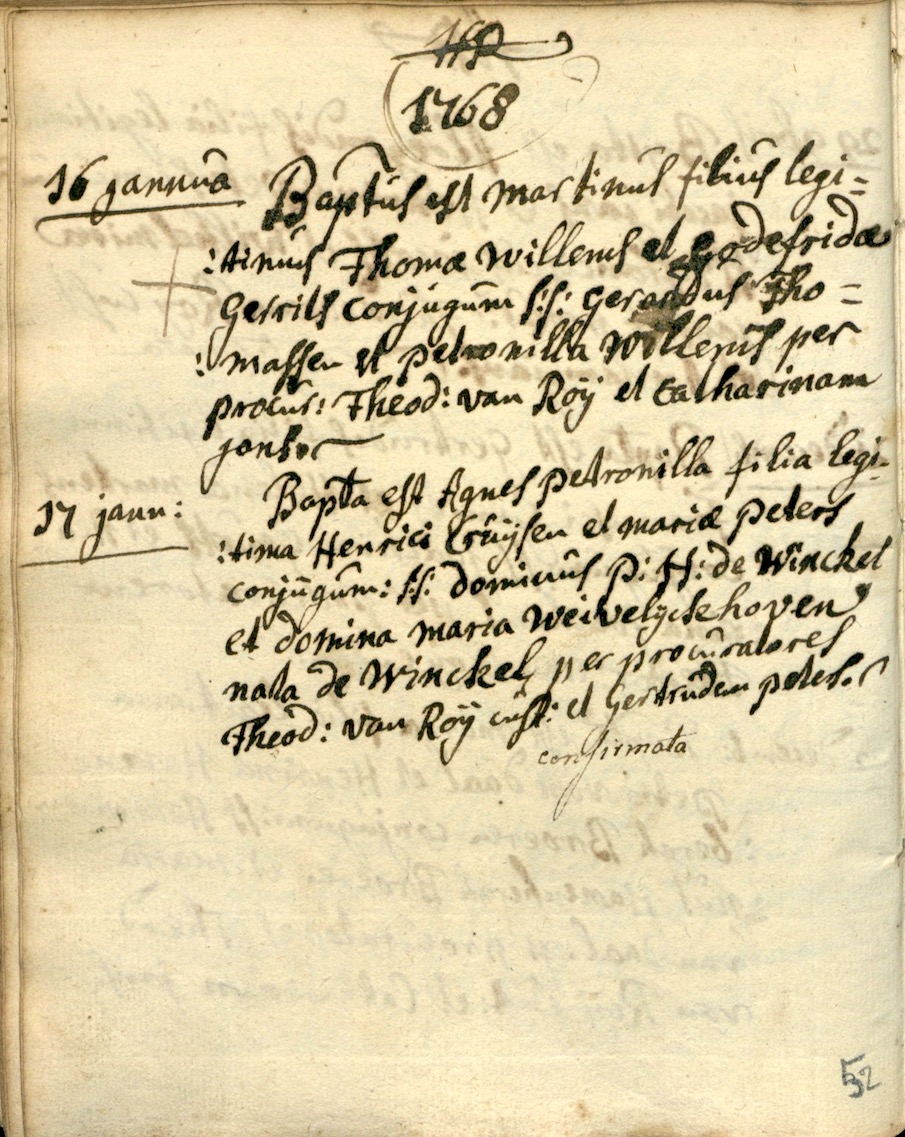 1768
16 jannua
Baptus est martinus filius legi=
:timus Thomæ Willems et godefridæ
Gerrits conjugum s:s: Gerardus Tho=
:massen et petronilla Willems per
procur: Theod: van Roÿ et Catharinam
17 jann:
Bapta est Agnes petronilla filia legi-
:tima Henrici Cruÿsen et mariæ peters
conjugum: s:s: dominus P: H: de Winckel
et domina maria
nata de Winckel, per procuratores
Theod: van Roÿ cust: et Gertrudem peters.
confirmata
52